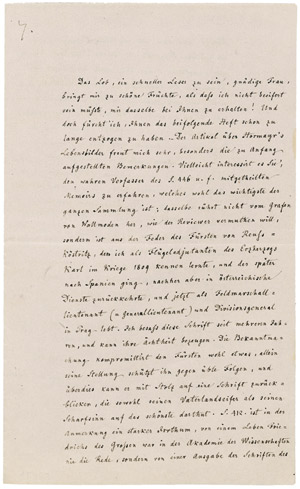 7.
Das Lob, ein schneller Leser zu sein, gnädige Frau,
bringt mir zu schöne Früchte, als daß ich nicht beeifert
sein müßte, mir dasselbe bei Ihnen zu erhalten! Und
doch fürcht' ich, Ihnen das beifolgende Heft schon zu
lange entzogen zu haben. Der Artikel über Hormayr's
Lebensbilder freut mich sehr, besonders die zu Anfang
aufgestellten Bemerkungen. Vielleicht interessirt es Sie,
den wahren Verfasser des S. 446 u. f. mitgetheilten
Memoirs zu erfahren, welches wohl das wichtigste der
ganzen Sammlung ist; dasselbe rührt nicht vom Grafen
von Wallmoden her, wie der Reviewer vermuthen will,
sondern ist aus der Feder des Fürsten von Reuß-
Köstritz, den ich als Flügeladjutanten des Erzherzogs
Karl im Kriege 1809 kennen lernte, und der später
nach Spanien ging, nachher aber in österreichische
Dienste zurückkehrte, und jetzt als Feldmarschall-
lieutenant (= Generallieutenant) und Divisionsgeneral
in Prag lebt. Ich besaß diese Schrift seit mehreren Jah-
ren, und kann ihre Ächtheit bezeugen. Die Bekanntma-
chung kompromittirt den Fürsten wohl etwas, allein
seine Stellung schützt ihn gegen üble Folgen, und
überdies kann er mit Stolz auf eine Schrift zurück-
blicken, die sowohl seinen Vaterlandseifer als seinen
Scharfsinn auf das schönste darthut. S. 412. ist in der
Anmerkung ein starker Irrthum, von einem Leben Frie-
drichs des Großen war in der Akademie der Wissenschaften
nie die Rede, sondern von einer Ausgabe der Schriften des